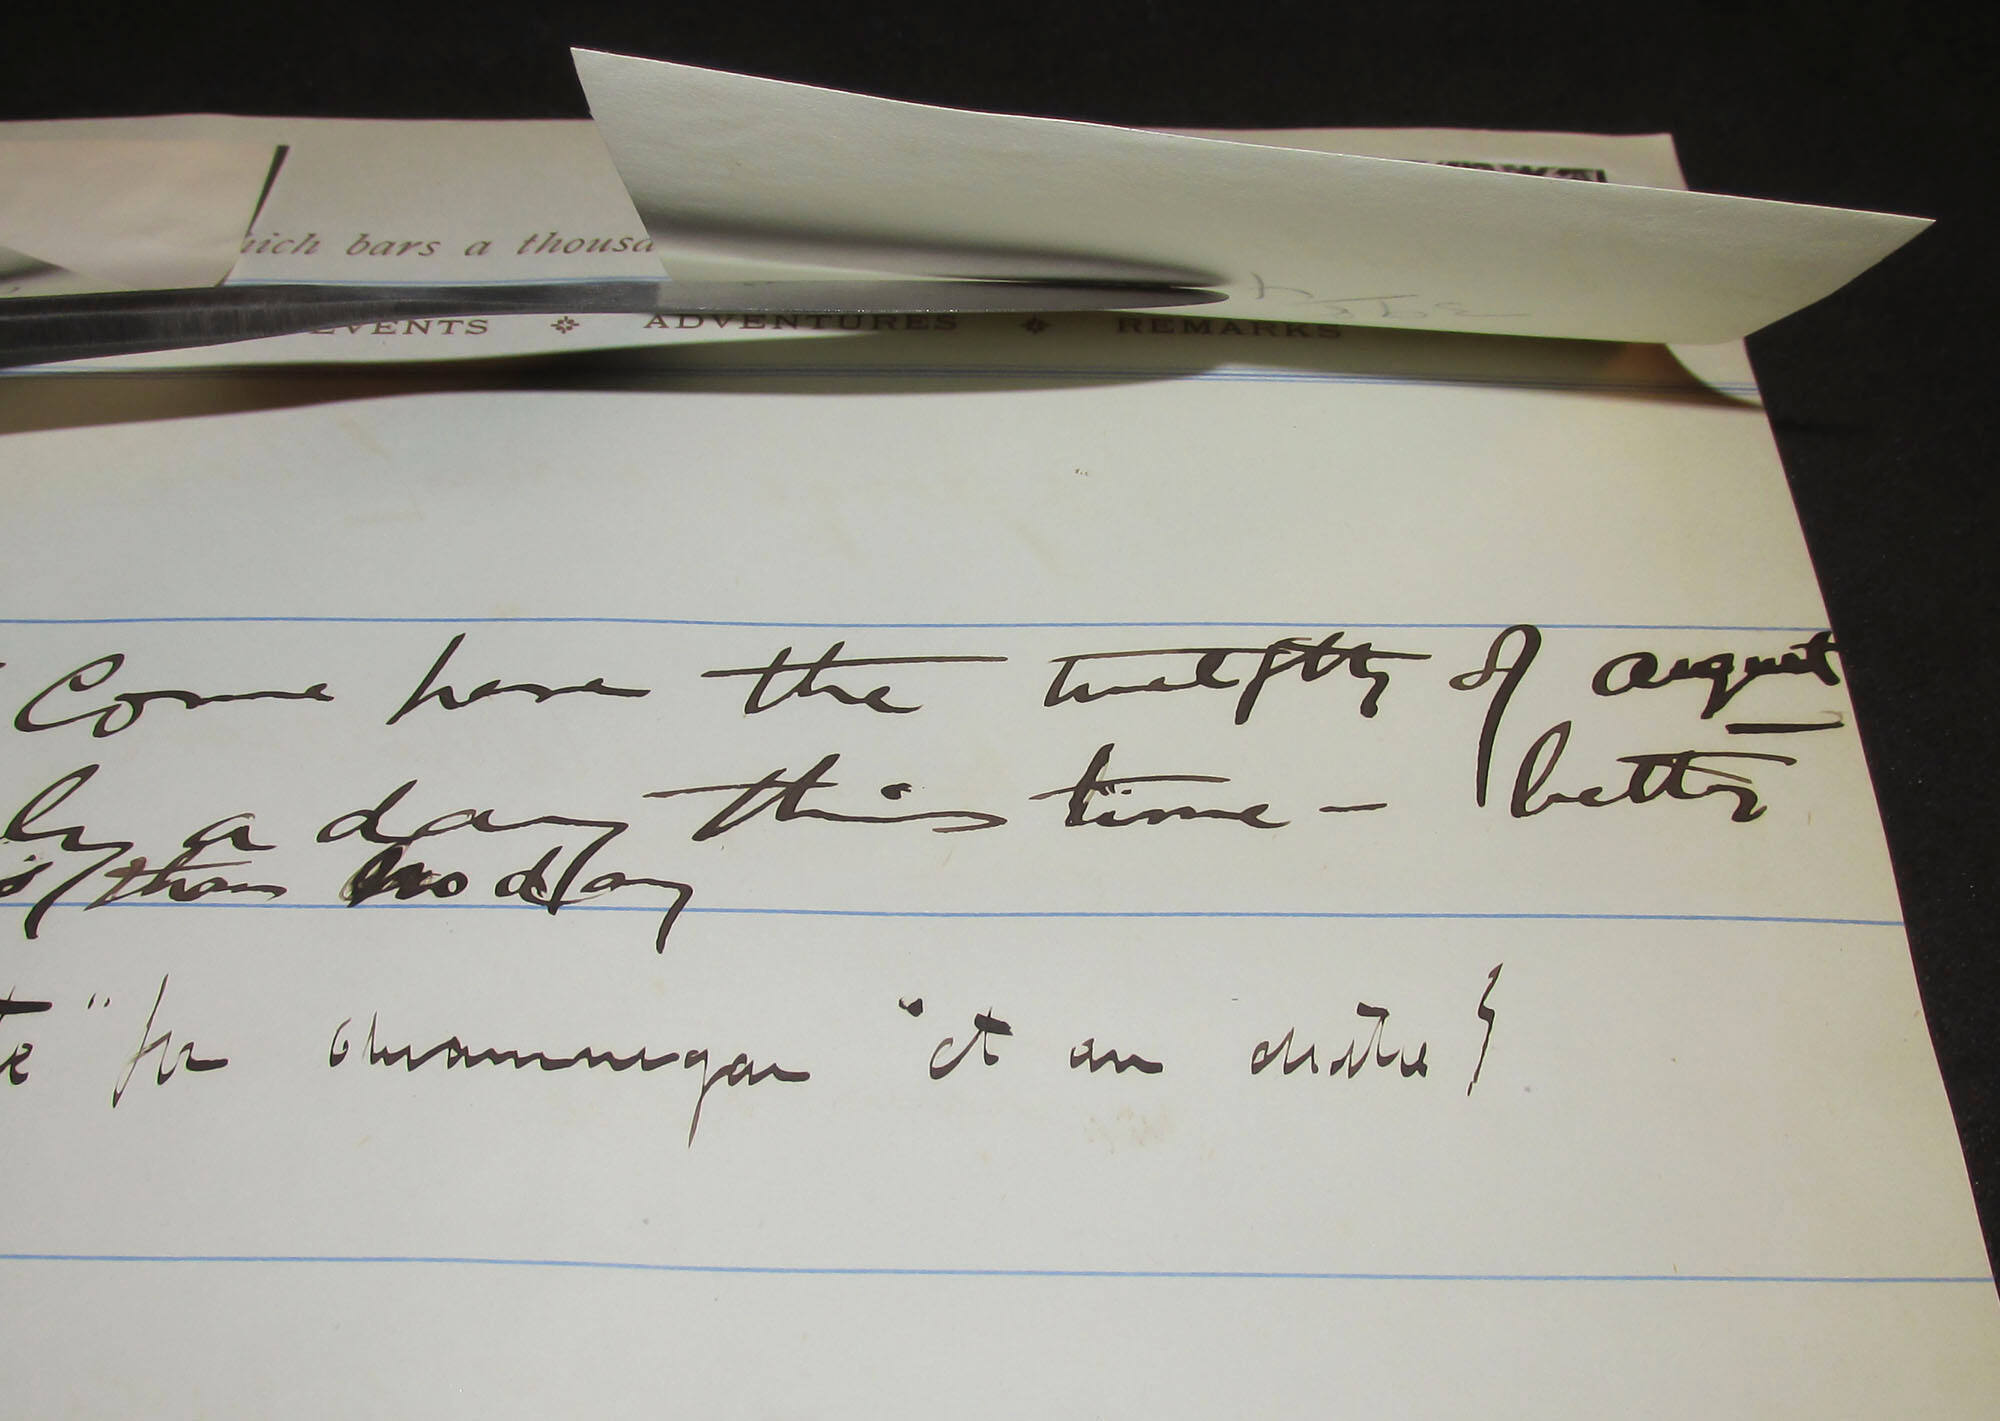 hich bars a thousa
EVENTS ADVENTURES REMARKS
Come here the twelfth of august
a day this time - better
than no day
" for "et an